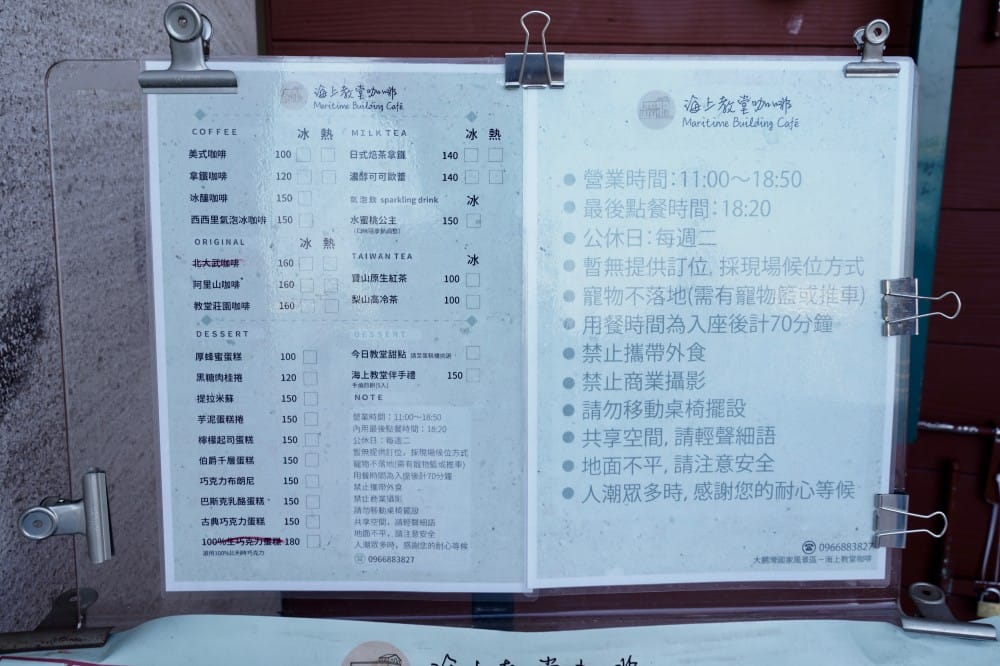 海上教堂咖啡
Maritime Building Café
COFFEE 冰 熱
美式咖啡 100
拿鐵咖啡 120
冰釀咖啡 150
西西里氣泡冰咖啡 150
ORIGINAL 冰 熱
北大武咖啡 160
阿里山咖啡 160
教堂莊園咖啡 160
DESSERT
厚蜂蜜蛋糕 100
黑糖肉桂捲 120
提拉米蘇 150
芋泥蛋糕捲 150
檸檬起司蛋糕 150
伯爵千層蛋糕 150
巧克力布朗尼 150
巴斯克乳酪蛋糕 150
古典巧克力蛋糕 150
100%生巧克力蛋糕 180
選用100%比利時巧克力
MILK TEA 冰 熱
日式焙茶拿鐵 140
濃醇可可歐蕾 140
氣泡飲 sparkling drink 冰
水蜜桃公主 150
TAIWAN TEA 冰
寶山原生紅茶 100
梨山高冷茶 100
DESSERT
今日教堂甜點 請至蛋糕櫃挑選
海上教堂伴手禮 150
手燒煎餅(5入)
NOTE
營業時間：11:00～18:50
內用最後點餐時間：18:20
公休日：每週二
暫無提供訂位，採現場候位方式
寵物不落地(需有寵物籃或推車)
用餐時間為入座後計70分鐘
禁止攜帶外食
禁止商業攝影
請勿移動桌椅擺設
共享空間，請輕聲細語
地面不平，請注意安全
人潮眾多時，感謝您的耐心等候
☎ 0966883827
海上教堂咖啡
Maritime Building Café
● 營業時間：11:00～18:50
● 最後點餐時間：18:20
● 公休日：每週二
● 暫無提供訂位, 採現場候位方式
● 寵物不落地(需有寵物籃或推車)
● 用餐時間為入座後計70分鐘
● 禁止攜帶外食
● 禁止商業攝影
● 請勿移動桌椅擺設
● 共享空間, 請輕聲細語
● 地面不平, 請注意安全
● 人潮眾多時, 感謝您的耐心等候
☎ 0966883827
大鵬灣國家風景區－海上教堂咖啡
海上教堂咖啡